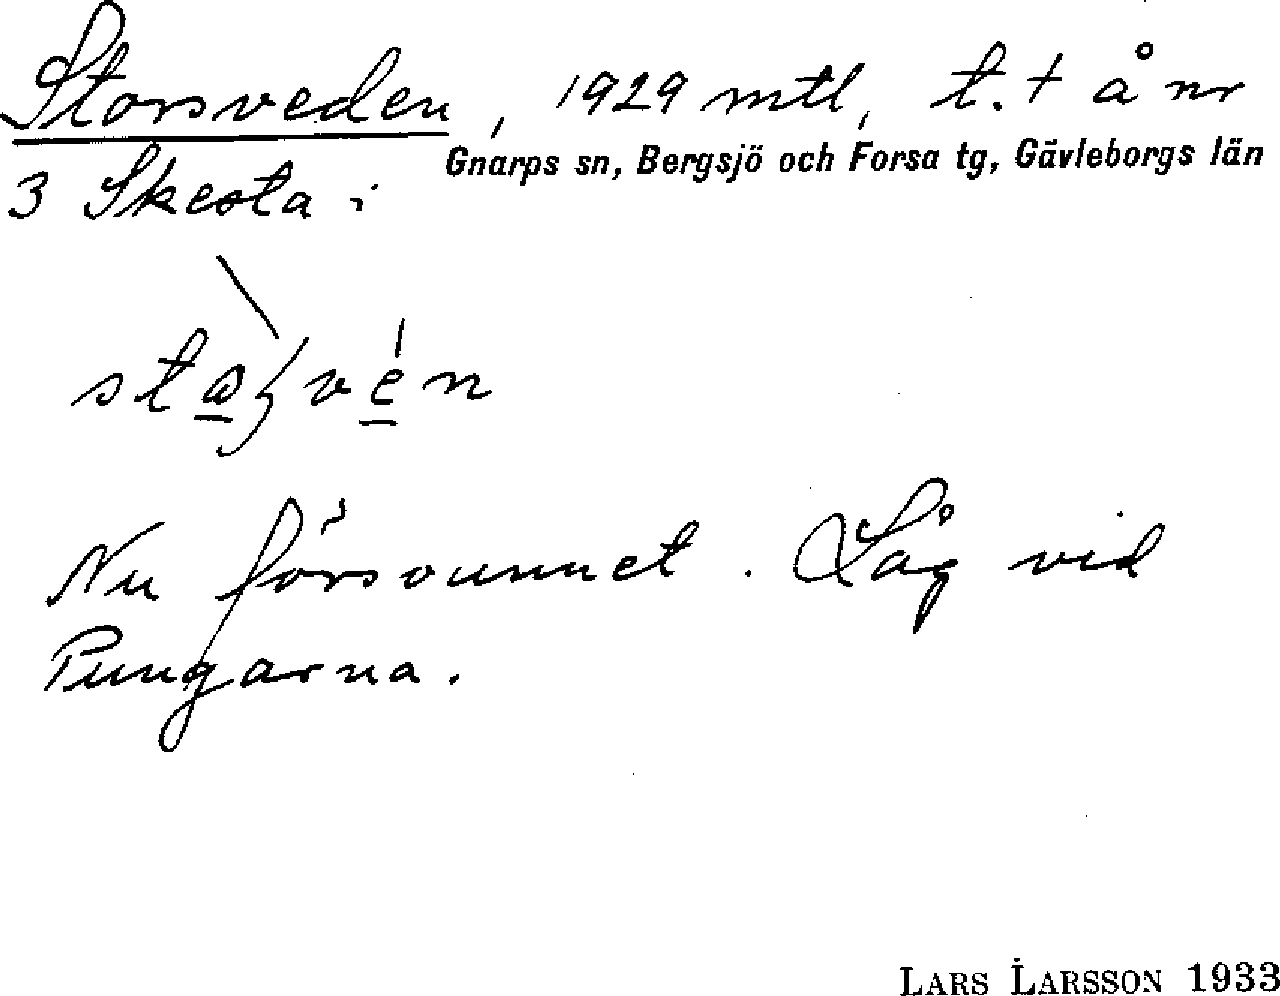 Storsveden, 1929 mtl, t. + å nr
Gnarps sn, Bergsjö och Forsa tg, Gävleborgs län
3 Skesta i
Nu försvunnet. Låg vid
Pungarna.
LARS LARSSON 1933